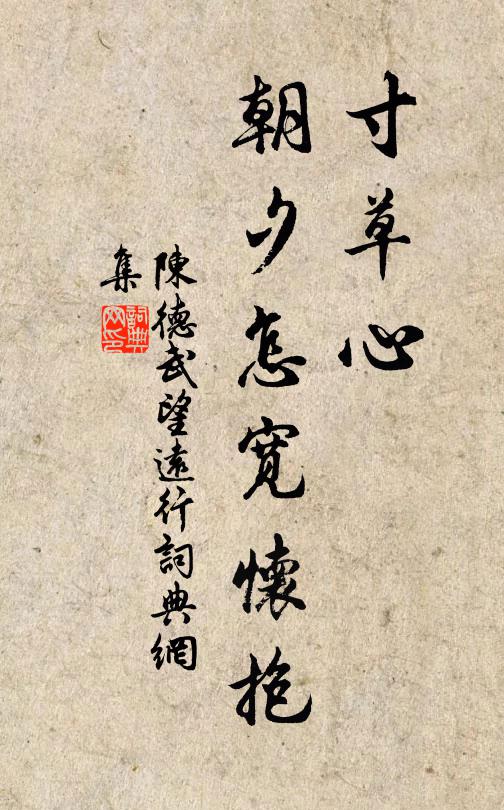 寸草心
朝夕怎寬懷抱
陳德武望遠行詞典網
集
詞典
网印